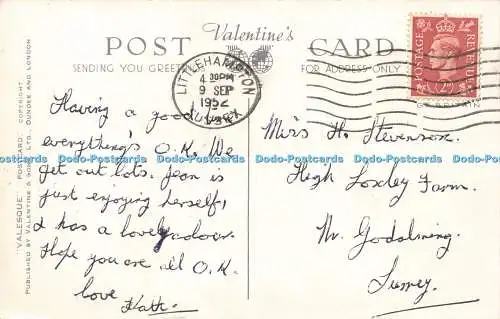 POST Valentine's CARD
SENDING YOU GREET
FOR ADDRESS ONLY
"VALESQUE" POSTCARD. COPYRIGHT
PUBLISHED BY VALENTINE & SONS, LTD., DUNDEE AND LONDON
LITTLEHAMPTON
4 30PM
9 SEP
1952
SUSSEX
POSTAGE
REVENUE
Having a good
everything's O.K. We
get out lots. Jean is
just enjoying herself,
& has a lovely colour.
Hope you are all O.K.
love
Kath.
Miss H. Stevenson.
High Loxley Farm.
Nr. Godalming.
Surrey.
Dodo-Postcards Dodo-Postcards Dodo-Postcards Dodo-Postcards Dodo-Postcards Dodo-Postcards